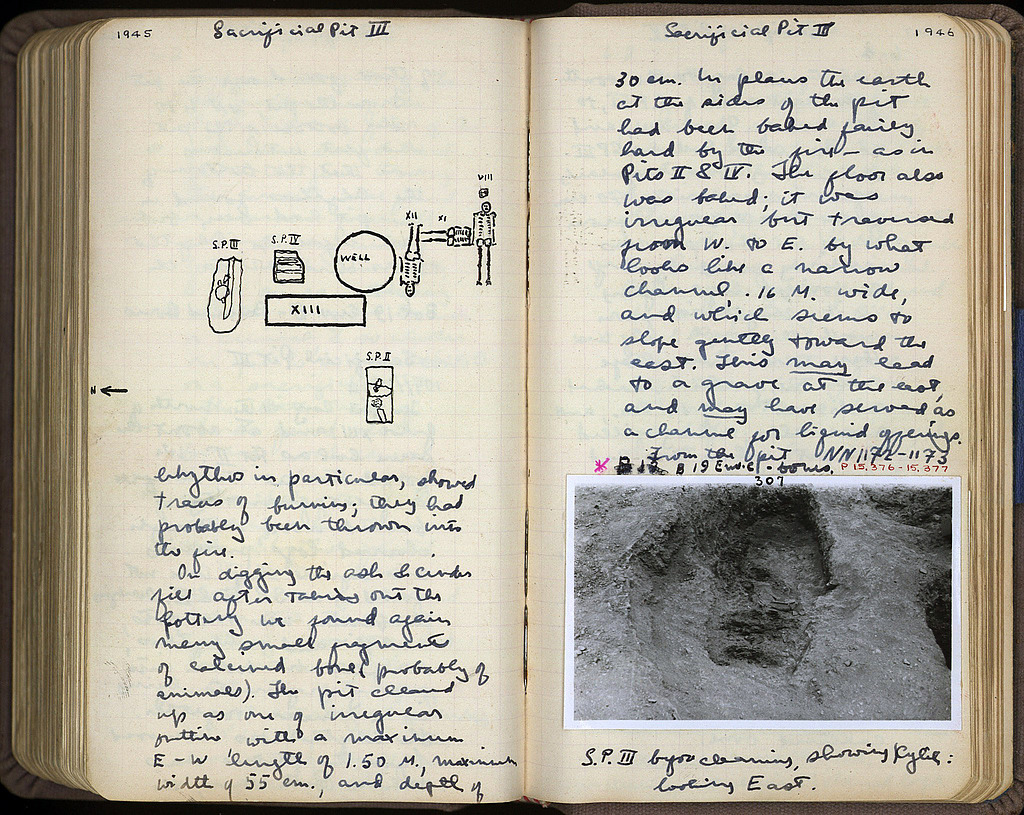 1945
Sacrificial Pit III
VIII
XII
XI
S.P. III
S.P. IV
WELL
XIII
S.P. II
N
in particular, showed
traces of burning; they had
probably been thrown into
the fire.
On digging the ash & cinder
fill after taking out the
pottery we found again
many small fragments
of calcined bone (probably of
animals). The pit cleaned
up as one of irregular
outline with a maximum
E - W length of 1.50 M., maximum
width of 55 cm., and depth of
Sacrificial Pit III
1946
30 cm. In places the earth
at the sides of the pit
had been baked fairly
hard by the fire — as in
Pits II & IV. The floor also
was baked; it was
irregular but traversed
from W. to E. by what
looks like a narrow
channel, .16 M. wide,
and which seems to
slope gently toward the
east. This may lead
to a grave at the east,
and may have served as
a channel for liquid offerings.
From the pit NN 1172-1173
B 19 - bones. P 15,376-15,377
307
S.P. III before cleaning, showing Kylix:
looking East.